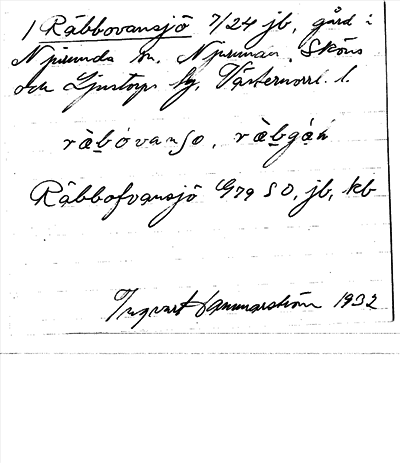 1 Räbbovansjö 7/24 jb, gård i
Njurunda sn, Njurunda, Sköns
och Ljustorps tg, Västernorrl. l.
räbovanſo, räbgán
Räbbofvansjö G79 SO, jb, kb
Ingvart Hammarström 1932